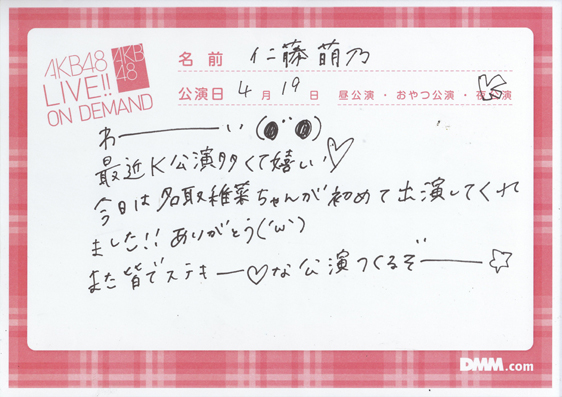 AKB48
LIVE!!
ON DEMAND
AKB
48
名前 仁藤萌乃
公演日 4月19日 昼公演・おやつ公演・夜公演
わーーーーい(●¨●)
最近K公演多くて嬉しい♡
今日は名取稚菜ちゃんが初めて出演してくれ
ました!!ありがとう('ω')
また皆でステキー♡な公演つくるぞーーー☆
DMM.com